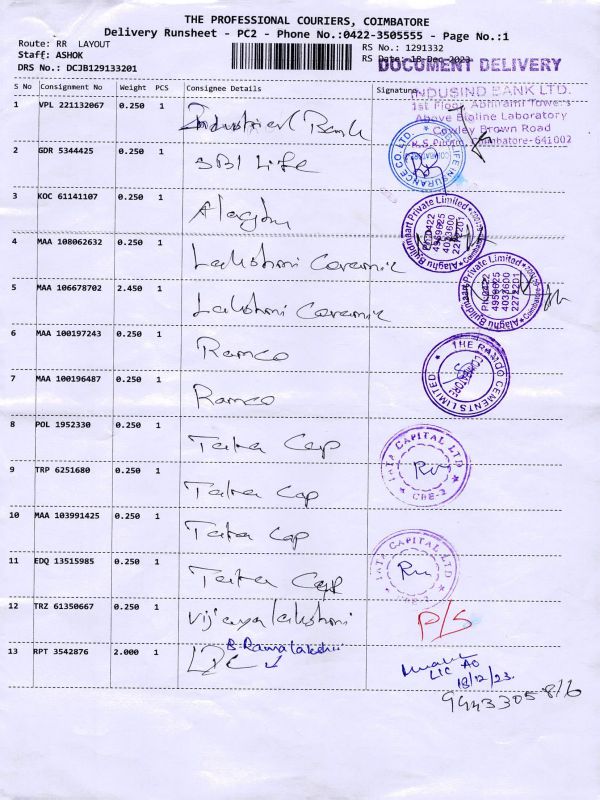 THE PROFESSIONAL COURIERS, COIMBATORE
Delivery Runsheet - PC2 - Phone No.:0422-3505555 - Page No.:1
Route: RR LAYOUT
Staff: ASHOK
DRS No.: DCJB129133201
RS No.: 1291332
RS Date: 18-Dec-2023
DOCUMENT DELIVERY
S No Consignment No Weight PCS Consignee Details Signature
INDUSIND BANK LTD.
1st Floor, Abhirami Towers
Above Bioline Laboratory
Cowley Brown Road
R.S.Puram, Coimbatore-641002
1 VPL 221132067 0.250 1 Industrial Bank
2 GDR 5344425 0.250 1 SBI Life
LIFE INSURANCE CO. LTD.
3 KOC 61141107 0.250 1 Alaghu
Alaghu Buildmaart Private Limited
PH:0422
4959625
4033600
2272201
4 MAA 108062632 0.250 1 Lakshmi Ceramic
5 MAA 106678702 2.450 1 Lakshmi Ceramic
Alaghu Buildmaart Private Limited
PH:0422
4959625
4033600
2272201
6 MAA 100197243 0.250 1 Ramco
7 MAA 100196487 0.250 1 Ramco
THE RAMCO CEMENTS LIMITED
COIMBATORE
8 POL 1952330 0.250 1 Tata Cap
9 TRP 6251680 0.250 1 Tata Cap
TATA CAPITAL LTD
CBE-2
10 MAA 103991425 0.250 1 Tata Cap
11 EDQ 13515985 0.250 1 Tata Cap
TATA CAPITAL LTD
CBE-2
12 TRZ 61350667 0.250 1 Vijayalakshmi P/S
B Ramalakshmi
13 RPT 3542876 2.000 1 LIC
LIC AO
18/12/23.
9443305816